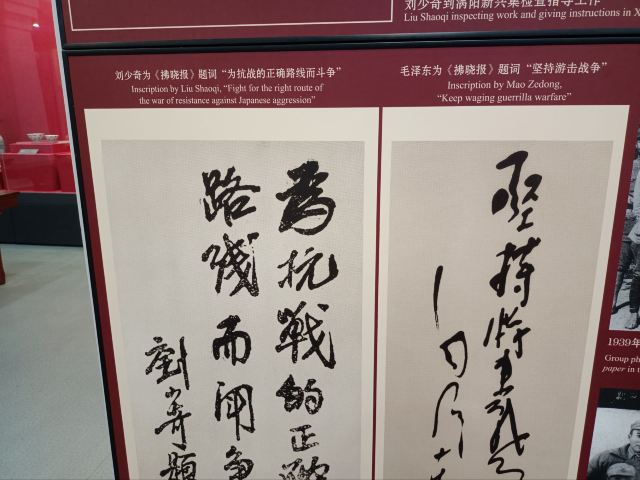 刘少奇到涡阳新兴集检查指导工作
Liu Shaoqi inspecting work and giving instructions in X
刘少奇为《拂晓报》题词“为抗战的正确路线而斗争”
Inscription by Liu Shaoqi, “Fight for the right route of
the war of resistance against Japanese aggression”
为抗戰的正確
路线而闘争
劉少奇題
毛泽东为《拂晓报》题词“坚持游击战争”
Inscription by Mao Zedong,
“Keep waging guerrilla warfare”
坚持游击战
1939年
Group ph
paper in t